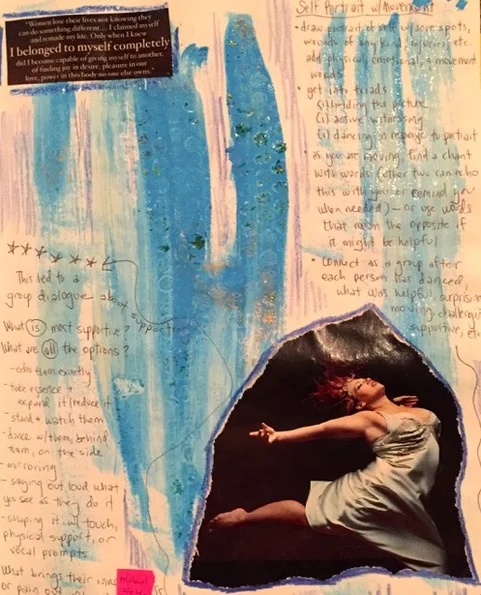 "Women lose their lives not knowing they
can do something different... I claimed myself
and remade my life. Only when I knew
I belonged to myself completely
did I become capable of giving myself to another,
of finding joy in desire, pleasure in our
love, power in this body no one else owns."
Self Portrait w/Movement
• draw portrait of self w/ sore spots,
wounds of any kind, injuries, etc.
add physical, emotional, & movement
words
• get into triads
(1) holding the picture
(1) active witnessing
(1) dancing in response to portrait
• as you are moving, find a chant
with words (other two can echo
this with you or remind you
when needed) – or use words
that mean the opposite if
it might be helpful
• Connect as a group after
each person has danced,
what was helpful, surprising
moving, challenging
supportive, etc.
This led to a
group dialogue about support
What is most supportive?
What are all the options?
- echo them exactly
- take essence &
expand it/reduce it
- stand & watch them
- dance w/them, behind
them, on the side
- mirroring
- saying out loud what
you see as they do it
- shaping it w/ touch,
physical support, or
vocal prompts
What brings their
or pain out
is